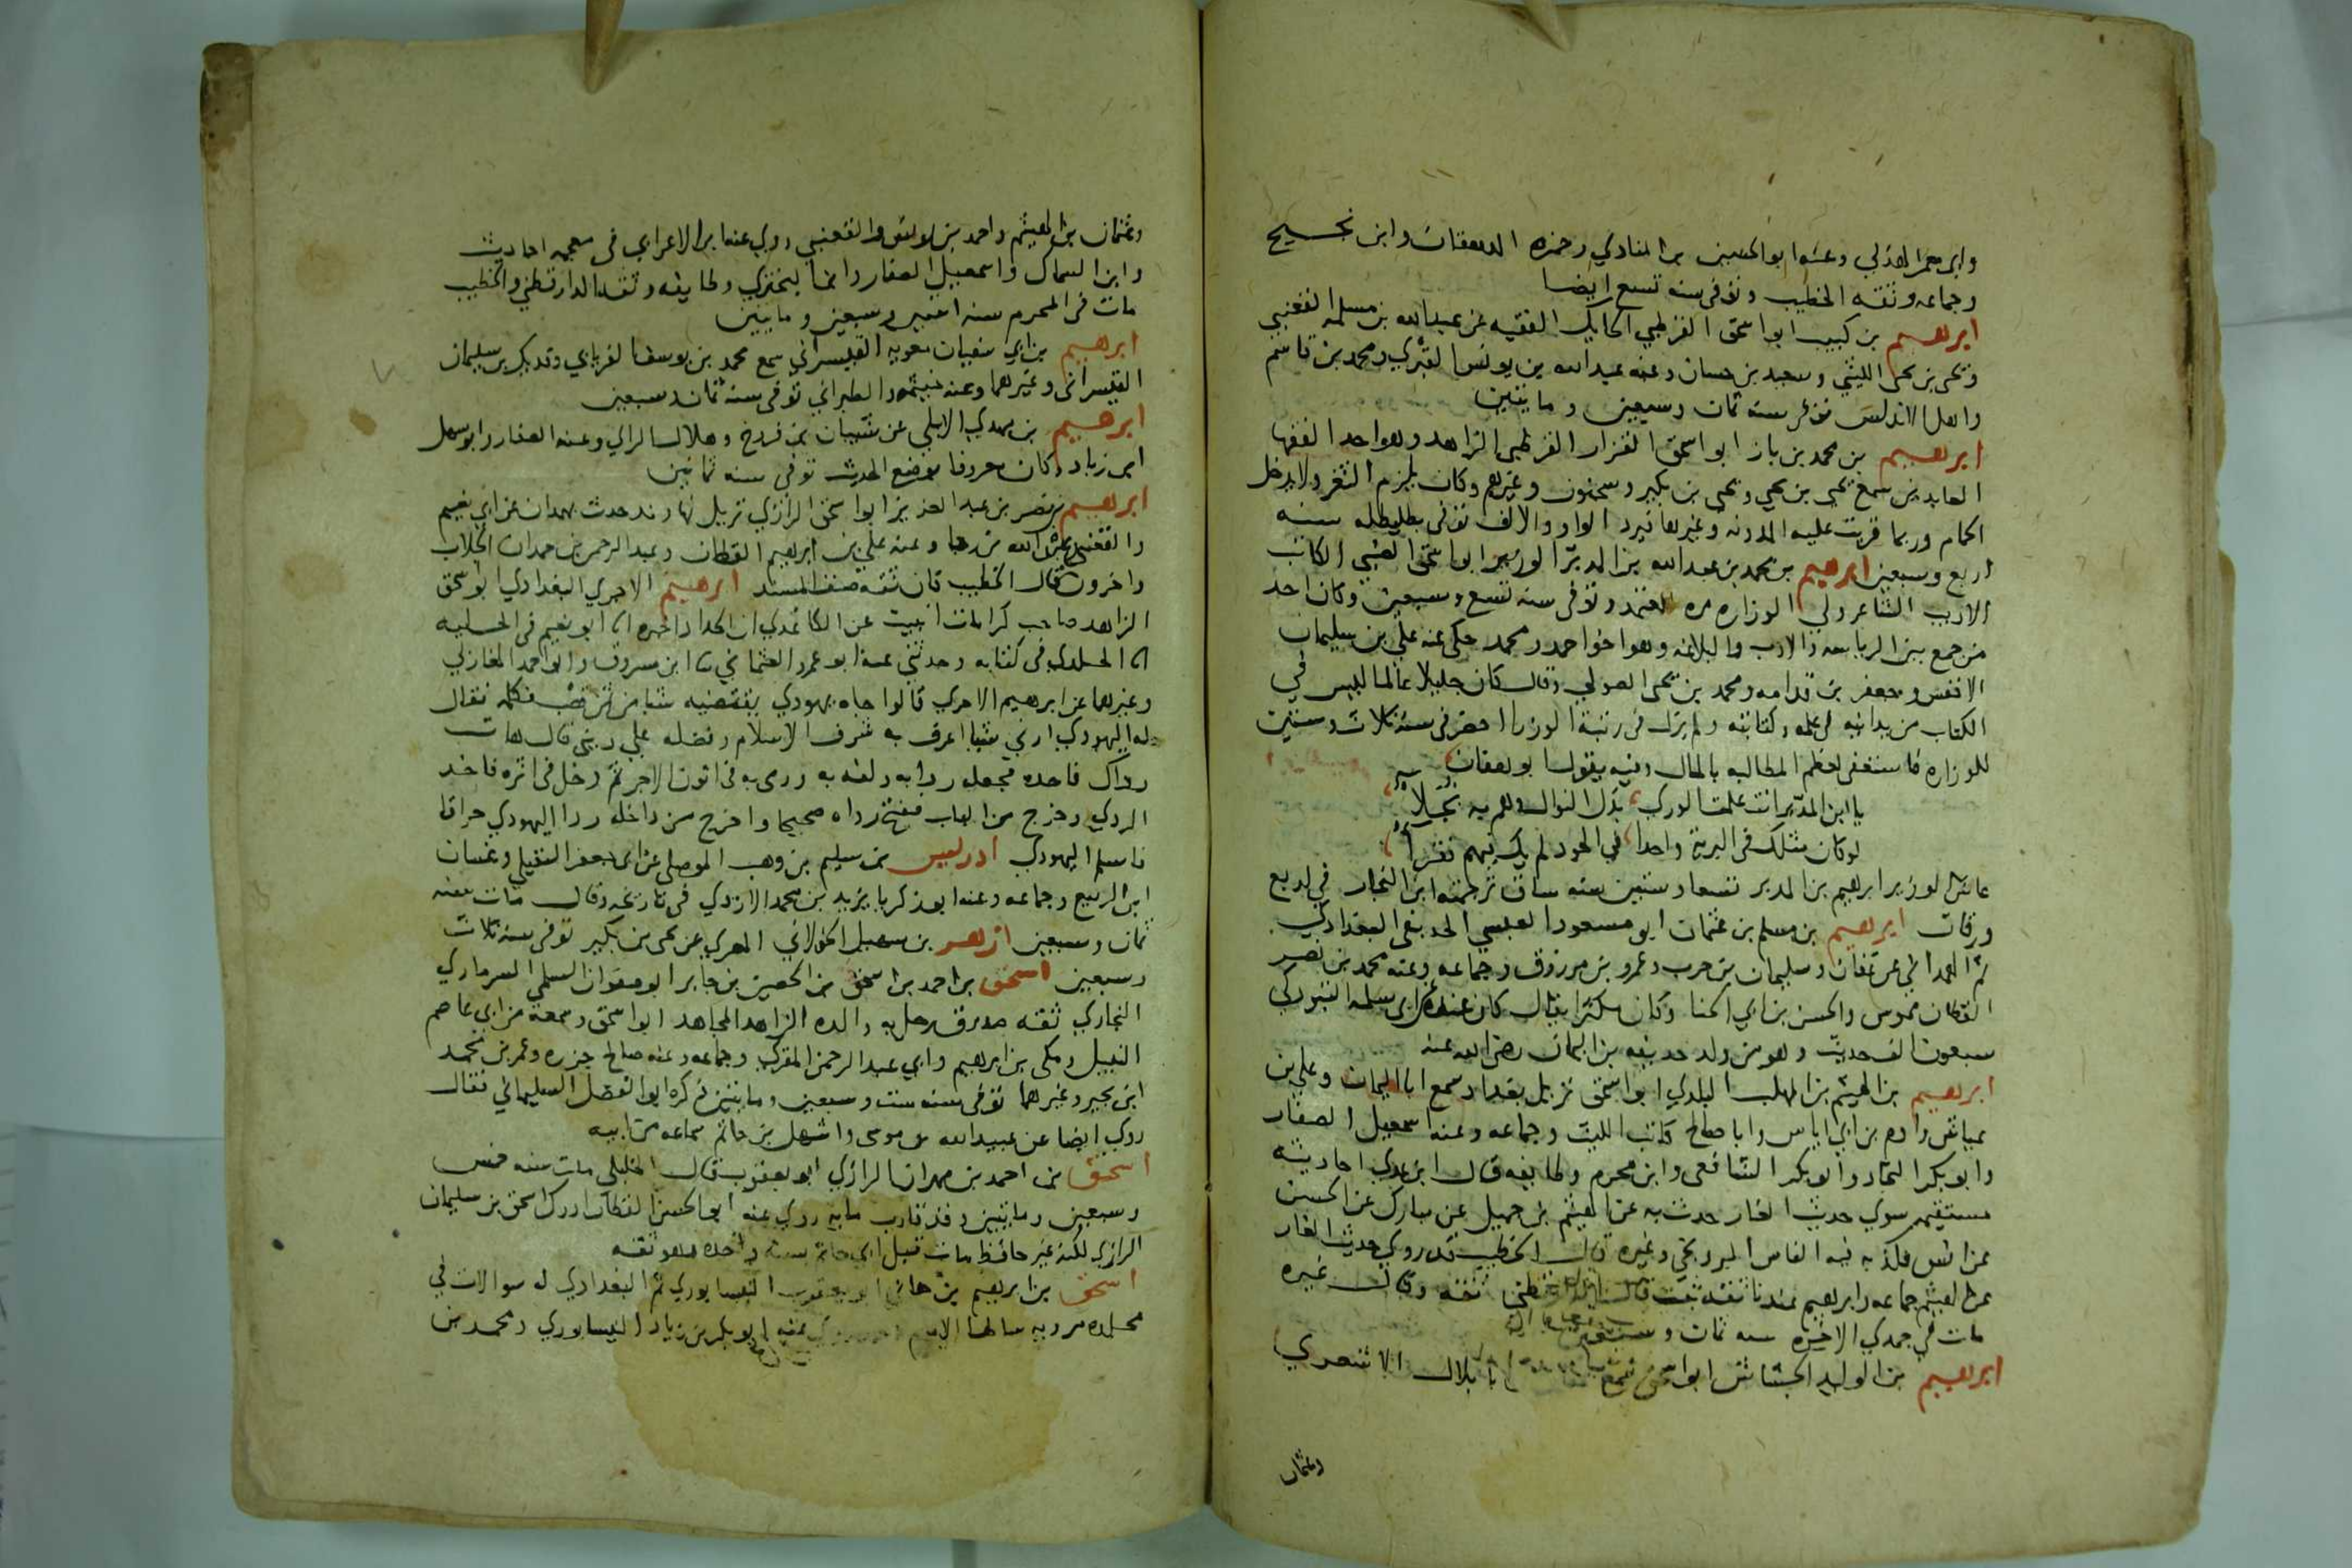 وابي معمر الهذلي وعنه ابو الحسين بن المنادي وحمزه الدهقان وابن نجيح
وجماعه وثقه الخطيب وتوفي سنه تسع ايضا
ابرهيم بن لبيب ابو اسحق القرطبي الفقيه عن عبدالله بن مسلمه القعنبي
ويحيى بن يحيى الليثي وسعيد بن حسان وعنه عبدالله بن يونس القبري ومحمد بن قاسم
واهل الاندلس توفي سنه ثمان وسبعين ومايتين
ابرهيم بن محمد بن باز ابو اسحق القزاز القرطبي الزاهد وهو احد الفقها
العابدين سمع يحيى بن يحيى ويحيى بن بكير وسحنون وغيرهم وكان يلزم الثغر ولا يدخل
الحمام وربما قريت عليه المدونه وغيرها فيرد الواو والالف توفي بطليطله سنه
اربع وسبعين ابرهيم بن محمد بن عبدالله بن المدبر الوزير ابو اسحق الكاتب
الاديب الشاعر ولي الوزاره مره للمعتمد وتوفي سنه تسع وسبعين وكان احد
من جمع بين الرياسه والادب والبلاغه وهو اخو احمد ومحمد حكى عنه علي بن سليمان
الاخفش وجعفر بن قدامه ومحمد بن يحيى الصولي وقال كان جليلا عالما ليس في
الكتاب من يدانيه في علمه وكتابته ولم يزل في رتبة الوزرا احضر في سنة ثلاث وستين
للوزاره فاستعفى لعظم المطالبه بالمال وفيه يقول ابو هفان
يا ابن المدبر انت علمت الورى بذل النوال وهم به بخلاء
لو كان مثلك في البرية واحدا في الجود لم يك فيهم فقراء
عاش الوزير ابراهيم بن المدبر تسعا وستين سنه ساق ترجمته ابن النجار في اربع
ورقات ابرهيم بن مسلم بن عثمان ابو مسعود العبسي الحذيفي البغدادي
ثم الهمداني عن عفان وسليمان بن حرب وعمرو بن مرزوق وجماعه وعنه محمد بن نصر
القطان مموس والحسن بن ابي الحنا وكان مكثرا يقال كان عنده عن ابي سلمه التبوذكي
سبعون الف حديث وهو من ولد حذيفه بن اليمان رضي الله عنه
ابرهيم بن الهيثم بن المهلب البلدي ابو اسحق نزيل بغداد سمع ابا اليمان وعلي بن
عياش وادم بن ابي اياس وابا صالح كاتب الليث وجماعه وعنه اسمعيل الصفار
وابو بكر النجاد وابو بكر الشافعي وابن محرم وطايفه قال ابن عدي احاديثه
مستقيمه سوي حديث الغار حدث به عن الهيثم بن جميل عن مبارك عن الحسن
عن انس فكذبه فيه الناس البرديجي وغيره قال الخطيب قد روي حديث الغار
عن الهيثم جماعه وابرهيم عندنا ثقه ثبت قال الدارقطني ثقه وقال غيره
مات في جمدي الاخره سنه ثمان وسبعين
ابرهيم بن الوليد الجشاش ابو اسحق سمع ابا بلال الاشعري
وعثمان
وعثمان بن الهيثم واحمد بن يونس والقعنبي روي عنه ابن الاعرابي في معجمه احاديث
وابن السماك واسمعيل الصفار وابن البختري وطايفه وثقه الدارقطني والخطيب
مات في المحرم سنه اثنين وسبعين ومايتين
ابرهيم بن ابي سفيان معويه القيسراني سمع محمد بن يوسف الفريابي وفديك بن سليمان
القيسراني وغيرهما وعنه خيثمه والطبراني توفي سنة ثمان وسبعين
ابرهيم بن مهدي الابلي عن شيبان بن فروخ وهلال الراي وعنه الصفار وابو سهل
ابن زياد وكان معروفا بوضع الحديث توفي سنه ثمانين
ابرهيم بن نصر بن عبد العزيز ابو اسحق الرازي نزيل نهاوند حدث بهمدان عن ابي نعيم
والقعنبي وعبدالله بن رجا وعنه علي بن ابرهيم القطان وعبد الرحمن بن حمدان الجلاب
واخرون قال الخطيب كان ثقه صنف المسند ابرهيم الاجري البغدادي ابو اسحق
الزاهد صاحب كرامات ابو نعيم في الحليه
الخلدي في كتابه وحدثني عنه ابو عمرو العثماني ابن مسروق وابو احمد المغازلي
وغيرهما عن ابرهيم الاجري قالوا جاه يهودي يقتضيه شيا من ثمن قصب فكلمه فقال
له اليهودي ارني شيا اعرف به شرف الاسلام وفضله علي ديني قال هات
رداك فاخده فجعله في ردايه ولفه به ورمي به في اتون الاجر ثم دخل في اثره فاخد
الردي وخرج من الباب ففتح رداه صحيحا واخرج من داخله ردا اليهودي حراقا
فاسلم اليهودي ادريس بن سليم بن وهب الموصلي عن ابي جعفر النفيلي وغسان
ابن الربيع وجماعه وعنه ابو زكريا يزيد بن محمد الازدي في تاريخه وقال مات سنه
ثمان وسبعين ازهر بن سهيل الخولاني المصري عن يحيى بن بكير توفي سنه ثلاث
وسبعين اسحق بن احمد بن اسحق بن الحصين بن جابر ابو صفوان السلمي السرماري
البخاري ثقه صدوق رحل به والده الزاهد المجاهد ابو اسحق وسمعه من ابي عاصم
النبيل ومكي بن ابرهيم وابي عبد الرحمن المقري وجماعه وعنه صالح جزره وعمر بن محمد
ابن بجير وغيرهما توفي سنه ست وسبعين ومايتين ذكره ابو الفضل السليماني فقال
روي ايضا عن عبيدالله بن موسى واشهل بن حاتم سماعه من ابيه
اسحق بن احمد بن مهران الرازي ابو يعقوب قال الخليلي مات سنه خمس
وسبعين ومايتين وقد قارب مايه روي عنه ابو الحسن القطان ادرك اسحق بن سليمان
الرازي لكنه غير حافظ مات قبل ابي حاتم بسنة واحده وهو ثقه
اسحق بن ابرهيم بن هاني ابو يعقوب النيسابوري ثم البغدادي له سوالات في
مجلده مرويه سالها الامام احمد روي عنه ابو بكر بن زياد النيسابوري ومحمد بن